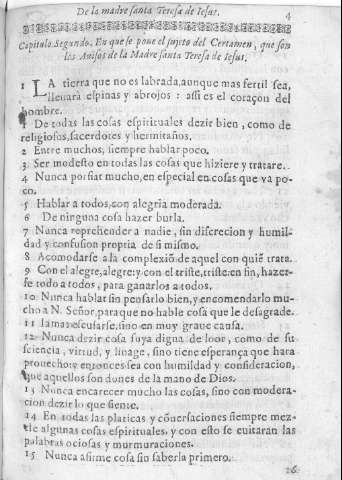 De la madre santa Teresa de Iesus. 4
Capitulo Segundo. En que se pone el sujeto del Certamen, que son
los Auisos de la Madre santa Teresa de Iesus.
1 LA tierra que no es labrada, aunque mas fertil sea,
lleuarà espinas y abrojos: assi es el coraçon del
hombre.
1 De todas las cosas espirituales dezir bien, como de
religiosos, sacerdotes y hermitaños.
2 Entre muchos, siempre hablar poco.
3 Ser modesto en todas las cosas que hiziere y tratare.
4 Nunca porfiar mucho, en especial en cosas que va po-
co.
5 Hablar a todos, con alegria moderada.
6 De ninguna cosa hazer burla.
7 Nunca reprehender a nadie, sin discrecion y humil-
dad y confusion propria de si mismo.
8 Acomodarse a la complexiõ de aquel con quiẽ trata.
9 Con el alegre, alegre: y con el triste, triste: en fin, hazer-
se todo a todos, para ganarlos a todos.
10 Nunca hablar sin pensarlo bien, y encomendarlo mu-
cho a N. Señor, para que no hable cosa que le desagrade.
11 Iamas escusarse, sino en muy graue causa.
12 Nunca dezir cosa suya digna de loor, como de su
sciencia, virtud, y linage, sino tiene esperança que hara
prouecho: y entonces sea con humildad y consideracion,
que aquellos son dones de la mano de Dios.
13 Nunca encarecer mucho las cosas, sino con modera-
cion dezir lo que siente.
14 En todas las platicas y cõuersaciones siempre mez-
cle algunas cosas espirituales, y con esto se euitaran las
palabras ociosas y murmuraciones.
15 Nunca afirme cosa sin saberla primero.